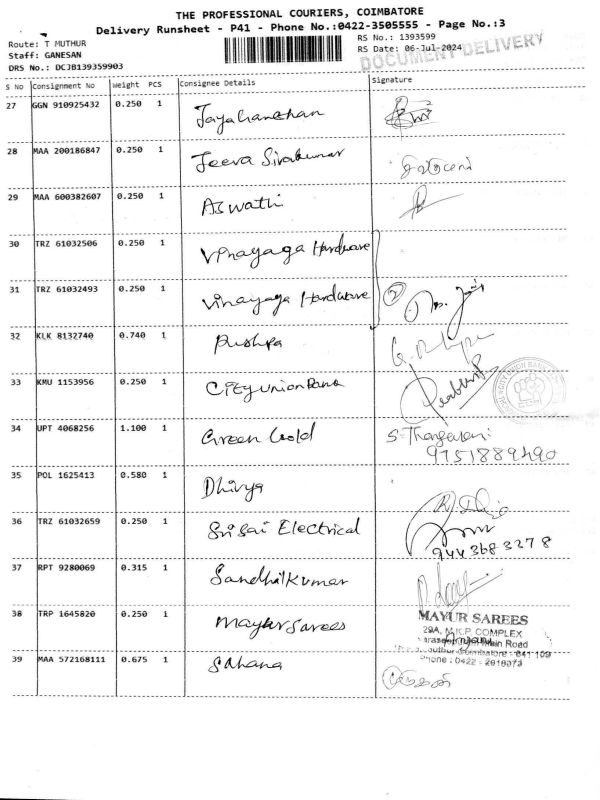 THE PROFESSIONAL COURIERS, COIMBATORE
Delivery Runsheet - P41 - Phone No.:0422-3505555 - Page No.:3
Route: T MUTHUR
Staff: GANESAN
DRS No.: DCJB139359903
RS No.: 1393599
RS Date: 06-Jul-2024
DOCUMENT DELIVERY
S No Consignment No Weight PCS Consignee Details Signature
27 GGN 910925432 0.250 1
28 MAA 200186847 0.250 1 Jeeva Sivakumar
29 MAA 600382607 0.250 1 Aswathi
30 TRZ 61032506 0.250 1 Vinayaga Hardware
31 TRZ 61032493 0.250 1 Vinayaga Hardware 2
32 KLK 8132740 0.740 1 Pushpa
33 KMU 1153956 0.250 1 City union Bank
34 UPT 4068256 1.100 1 Green Gold S. Thangavani
9751889490
35 POL 1625413 0.580 1 Dhivya
36 TRZ 61032659 0.250 1 Sri Sai Electrical
944 368 3278
37 RPT 9280069 0.315 1 Sandhilkumar
38 TRP 1645820 0.250 1 Mayur Sarees MAYUR SAREES
29A, M.K.P. COMPLEX
Main Road
Coimbatore - 641 109
Phone : 0422 - 2618073
39 MAA 572168111 0.675 1 Sahana